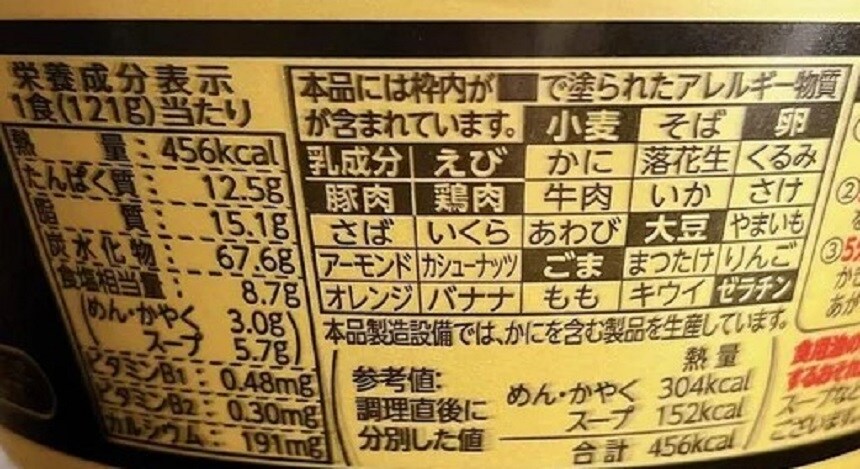 栄養成分表示
1食(121g)当たり
熱量：456kcal
たんぱく質：12.5g
脂質：15.1g
炭水化物：67.6g
食塩相当量：8.7g
(めん・かやく 3.0g
スープ 5.7g)
ビタミンB1：0.48mg
ビタミンB2：0.30mg
カルシウム：191mg
本品には枠内が■で塗られたアレルギー物質
が含まれています。 小麦 そば 卵
乳成分 えび かに 落花生 くるみ
豚肉 鶏肉 牛肉 いか さけ
さば いくら あわび 大豆 やまいも
アーモンド カシューナッツ ごま まつたけ りんご
オレンジ バナナ もも キウイ ゼラチン
本品製造設備では、かにを含む製品を生産しています。
参考値:
調理直後に
分別した値
熱量
めん・かやく 304kcal
スープ 152kcal
合計 456kcal
②
③5
か
あか
食用油の
するみそ
スープな
ございます